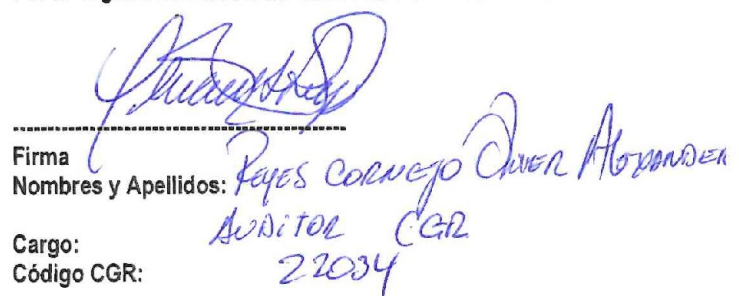 Firma
Nombres y Apellidos: Reyes Cornejo Oliver Alexander
Cargo: Auditor CGR
Código CGR: 22034